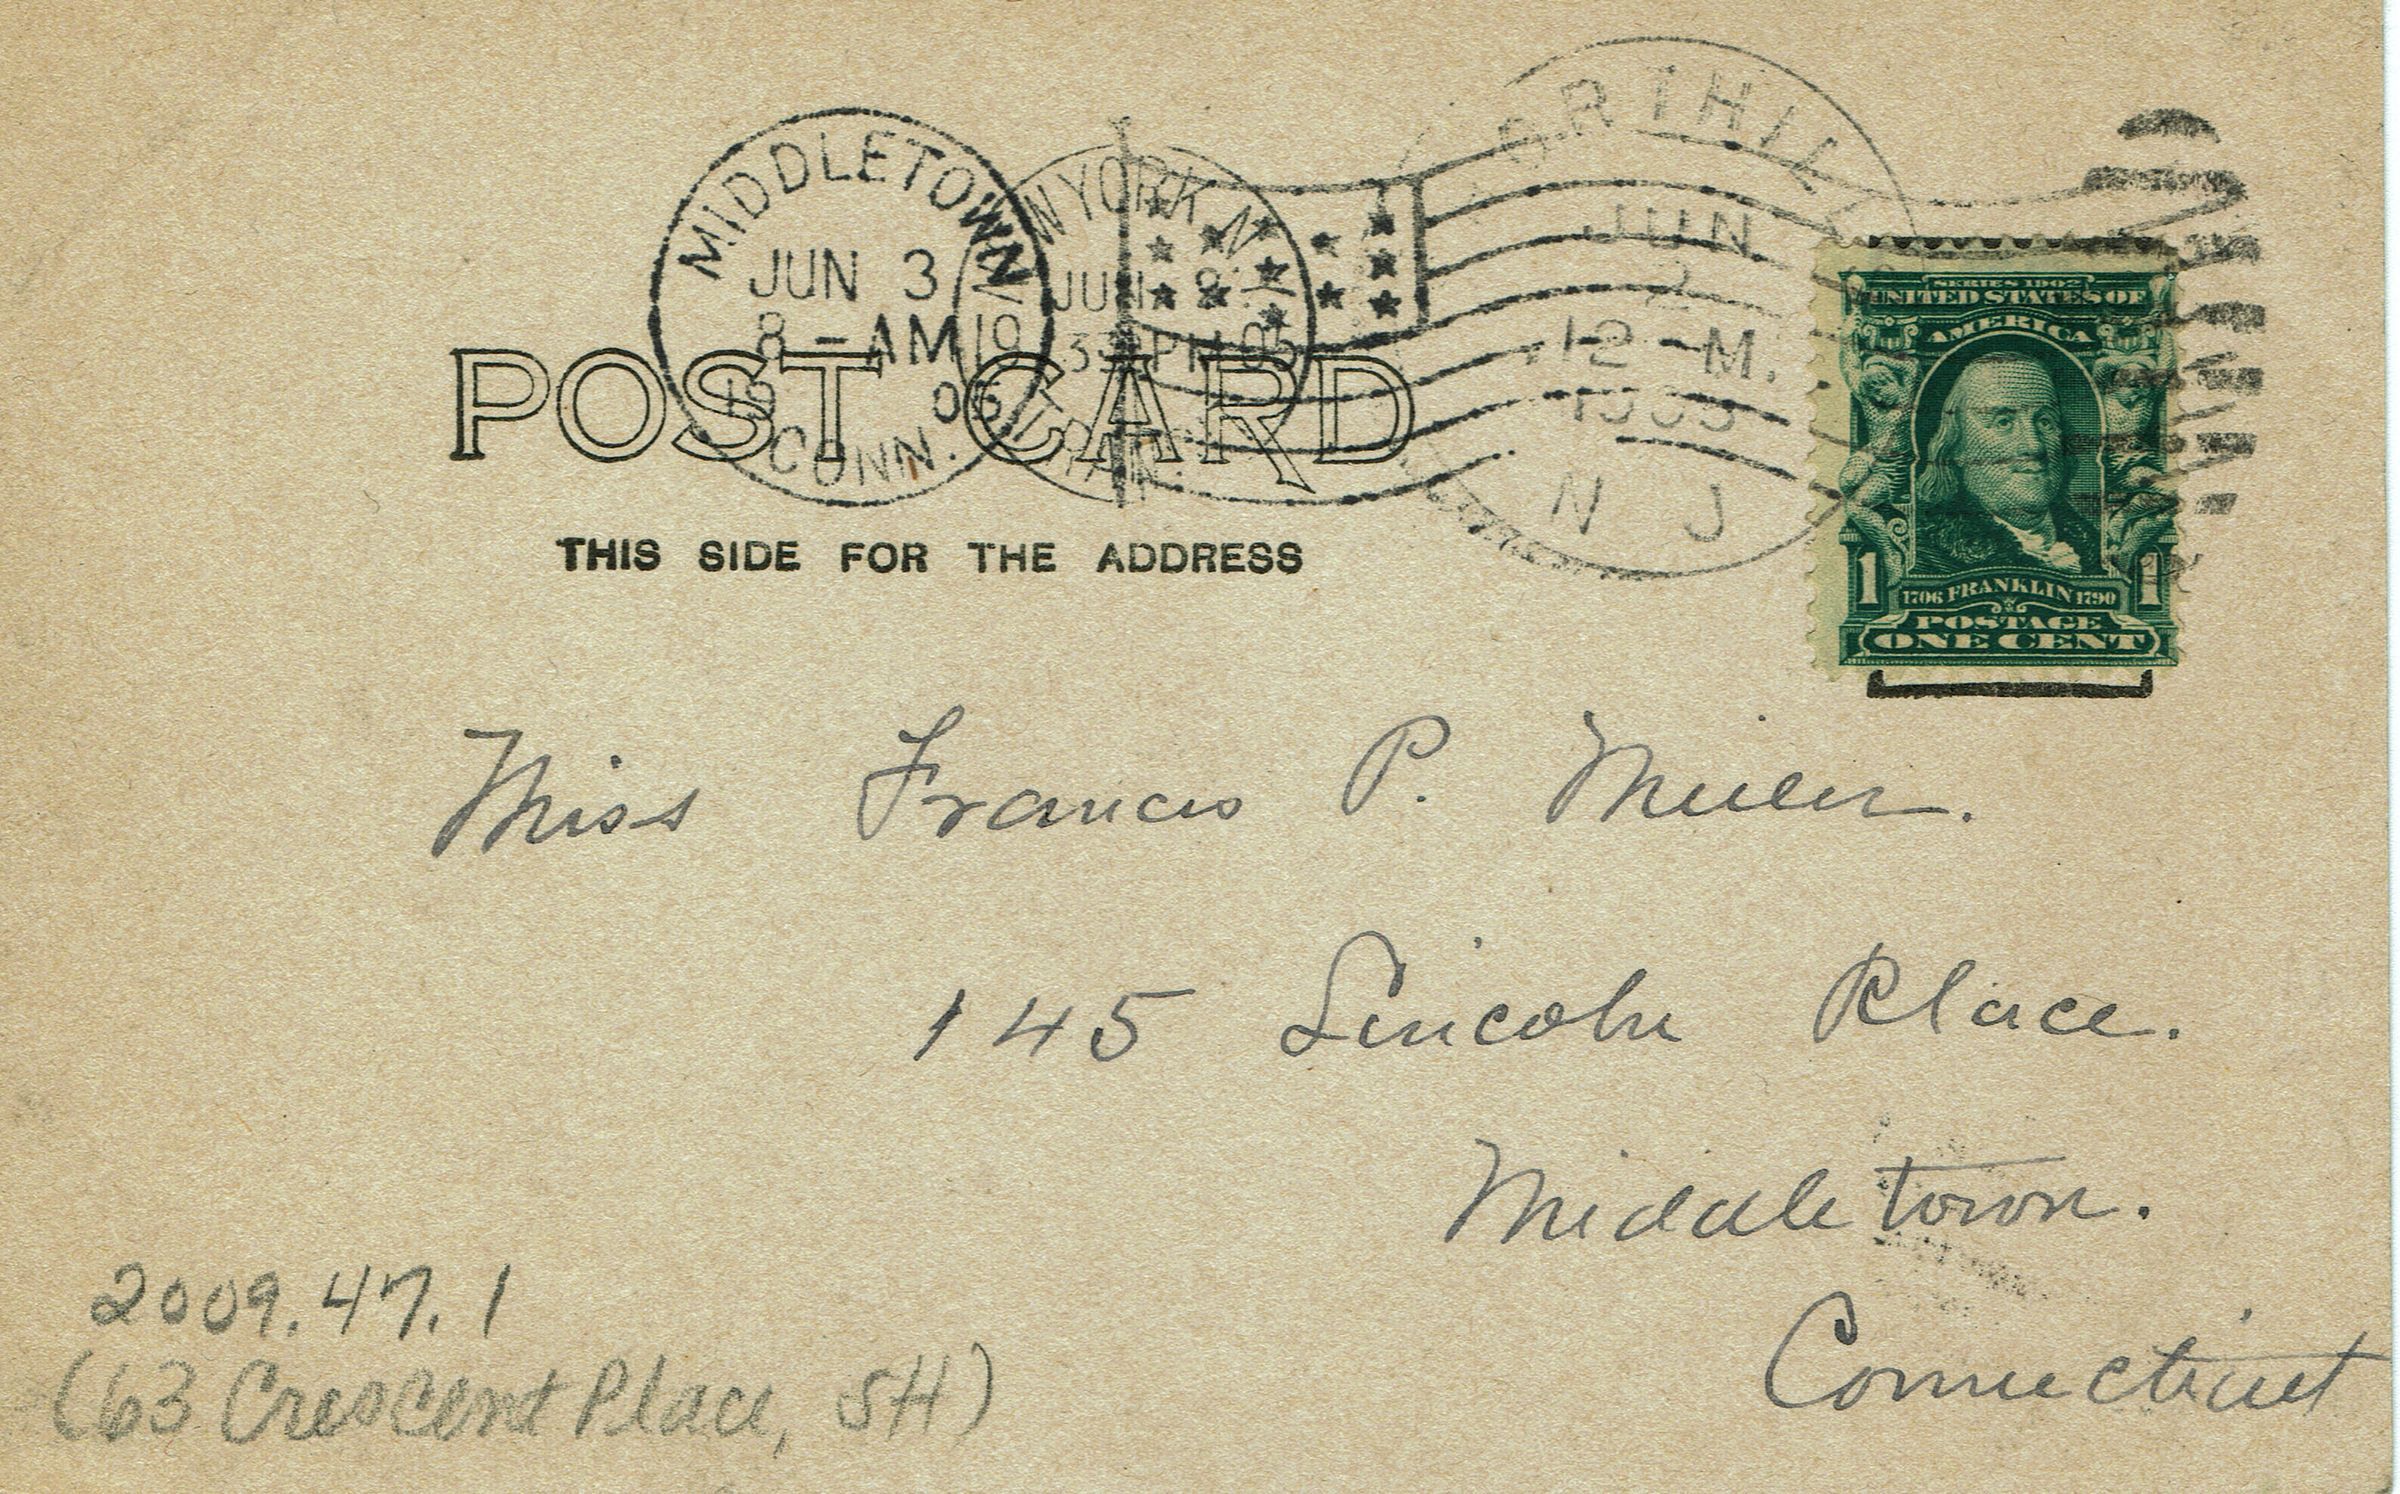 MIDDLETOWN
JUN 3
8-AM
19 05
CONN.
W YORK, N
JUN 2
19 3 PM 05
TRAN.
ORTHIL
JUN
2
12-M.
1905
N J
SERIES 1902
UNITED STATES OF
AMERICA
1706 FRANKLIN 1790
1 1
POSTAGE
ONE CENT
POST CARD
THIS SIDE FOR THE ADDRESS
Miss Francis P.
145 Lincoln Place.
Middletown.
Connecticut
2009.47.1
(63 Crescent Place, SH)